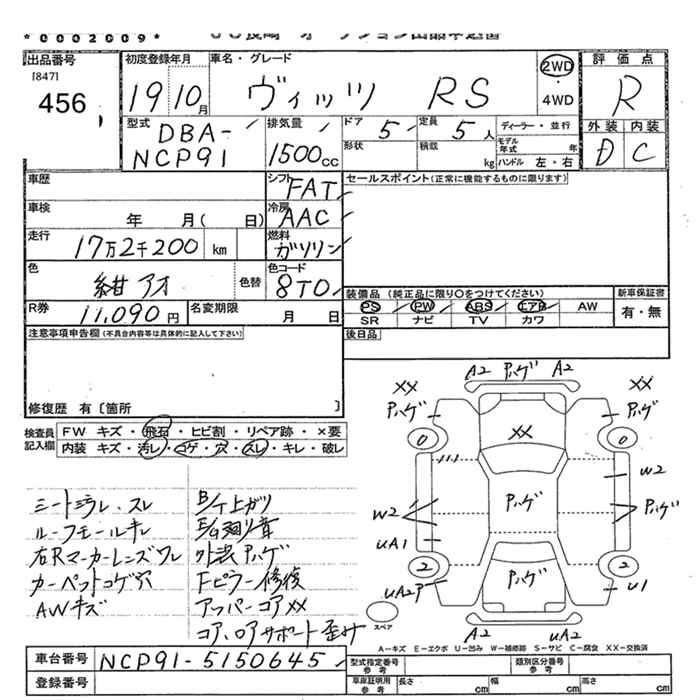 *0002009*
出品番号
[847]
456
初度登録年月
19 10月
車名・グレード
ヴィッツ RS
2WD
・
4WD
評価点
R
型式
DBA-
NCP91
排気量
1500cc
ドア
5
定員
5人
形状
積載
kg
ディーラー・並行
モデル年式
年
ハンドル 左・右
外装 内装
D C
車歴
シフト
FAT
セールスポイント(正常に機能するものに限ります)
車検
年 月( 日)
冷房
AAC
走行
17万2千200 km
燃料
ガソリン
色
紺 アオ
色替
色コード
8T0
R券
11,090円
名変期限
月 日
装備品(純正品に限り○をつけてください)
PS PW ABS エアB AW
SR ナビ TV カワ
新車保証書
有・無
注意事項申告欄(不具合内容等は具体的に記入して下さい)
後日品
修復歴 有〔箇所 〕
検査員
記入欄
FW キズ・飛石・ヒビ割・リペア跡・×要
内装 キズ・汚レ・コゲ・穴・スレ・キレ・破レ
シートミラレ・スレ
ルーフモールキレ
右Rマーカーレンズワレ
カーペットコゲ穴
AWキズ
B/下上ガリ
E/G廻リ音
外装ハゲ
Fピラー修復
アッパーコア××
コア、ロアサポート歪み
A2 ハゲ A2
×× ××
ハゲ ハゲ
0 0
××
W2
ハゲ
W2 ハゲ
UA1
2 2
ハゲ
UA2P U1
A2 A2
U2
スペア
A-キズ E-エクボ U-凹み W-補修跡 S-サビ C-腐食 XX-交換済
車台番号
NCP91-5150645
登録番号
型式指定番号
参考
類別区分番号
参考
車庫証明用
参考
長さ cm
幅 cm
高さ cm